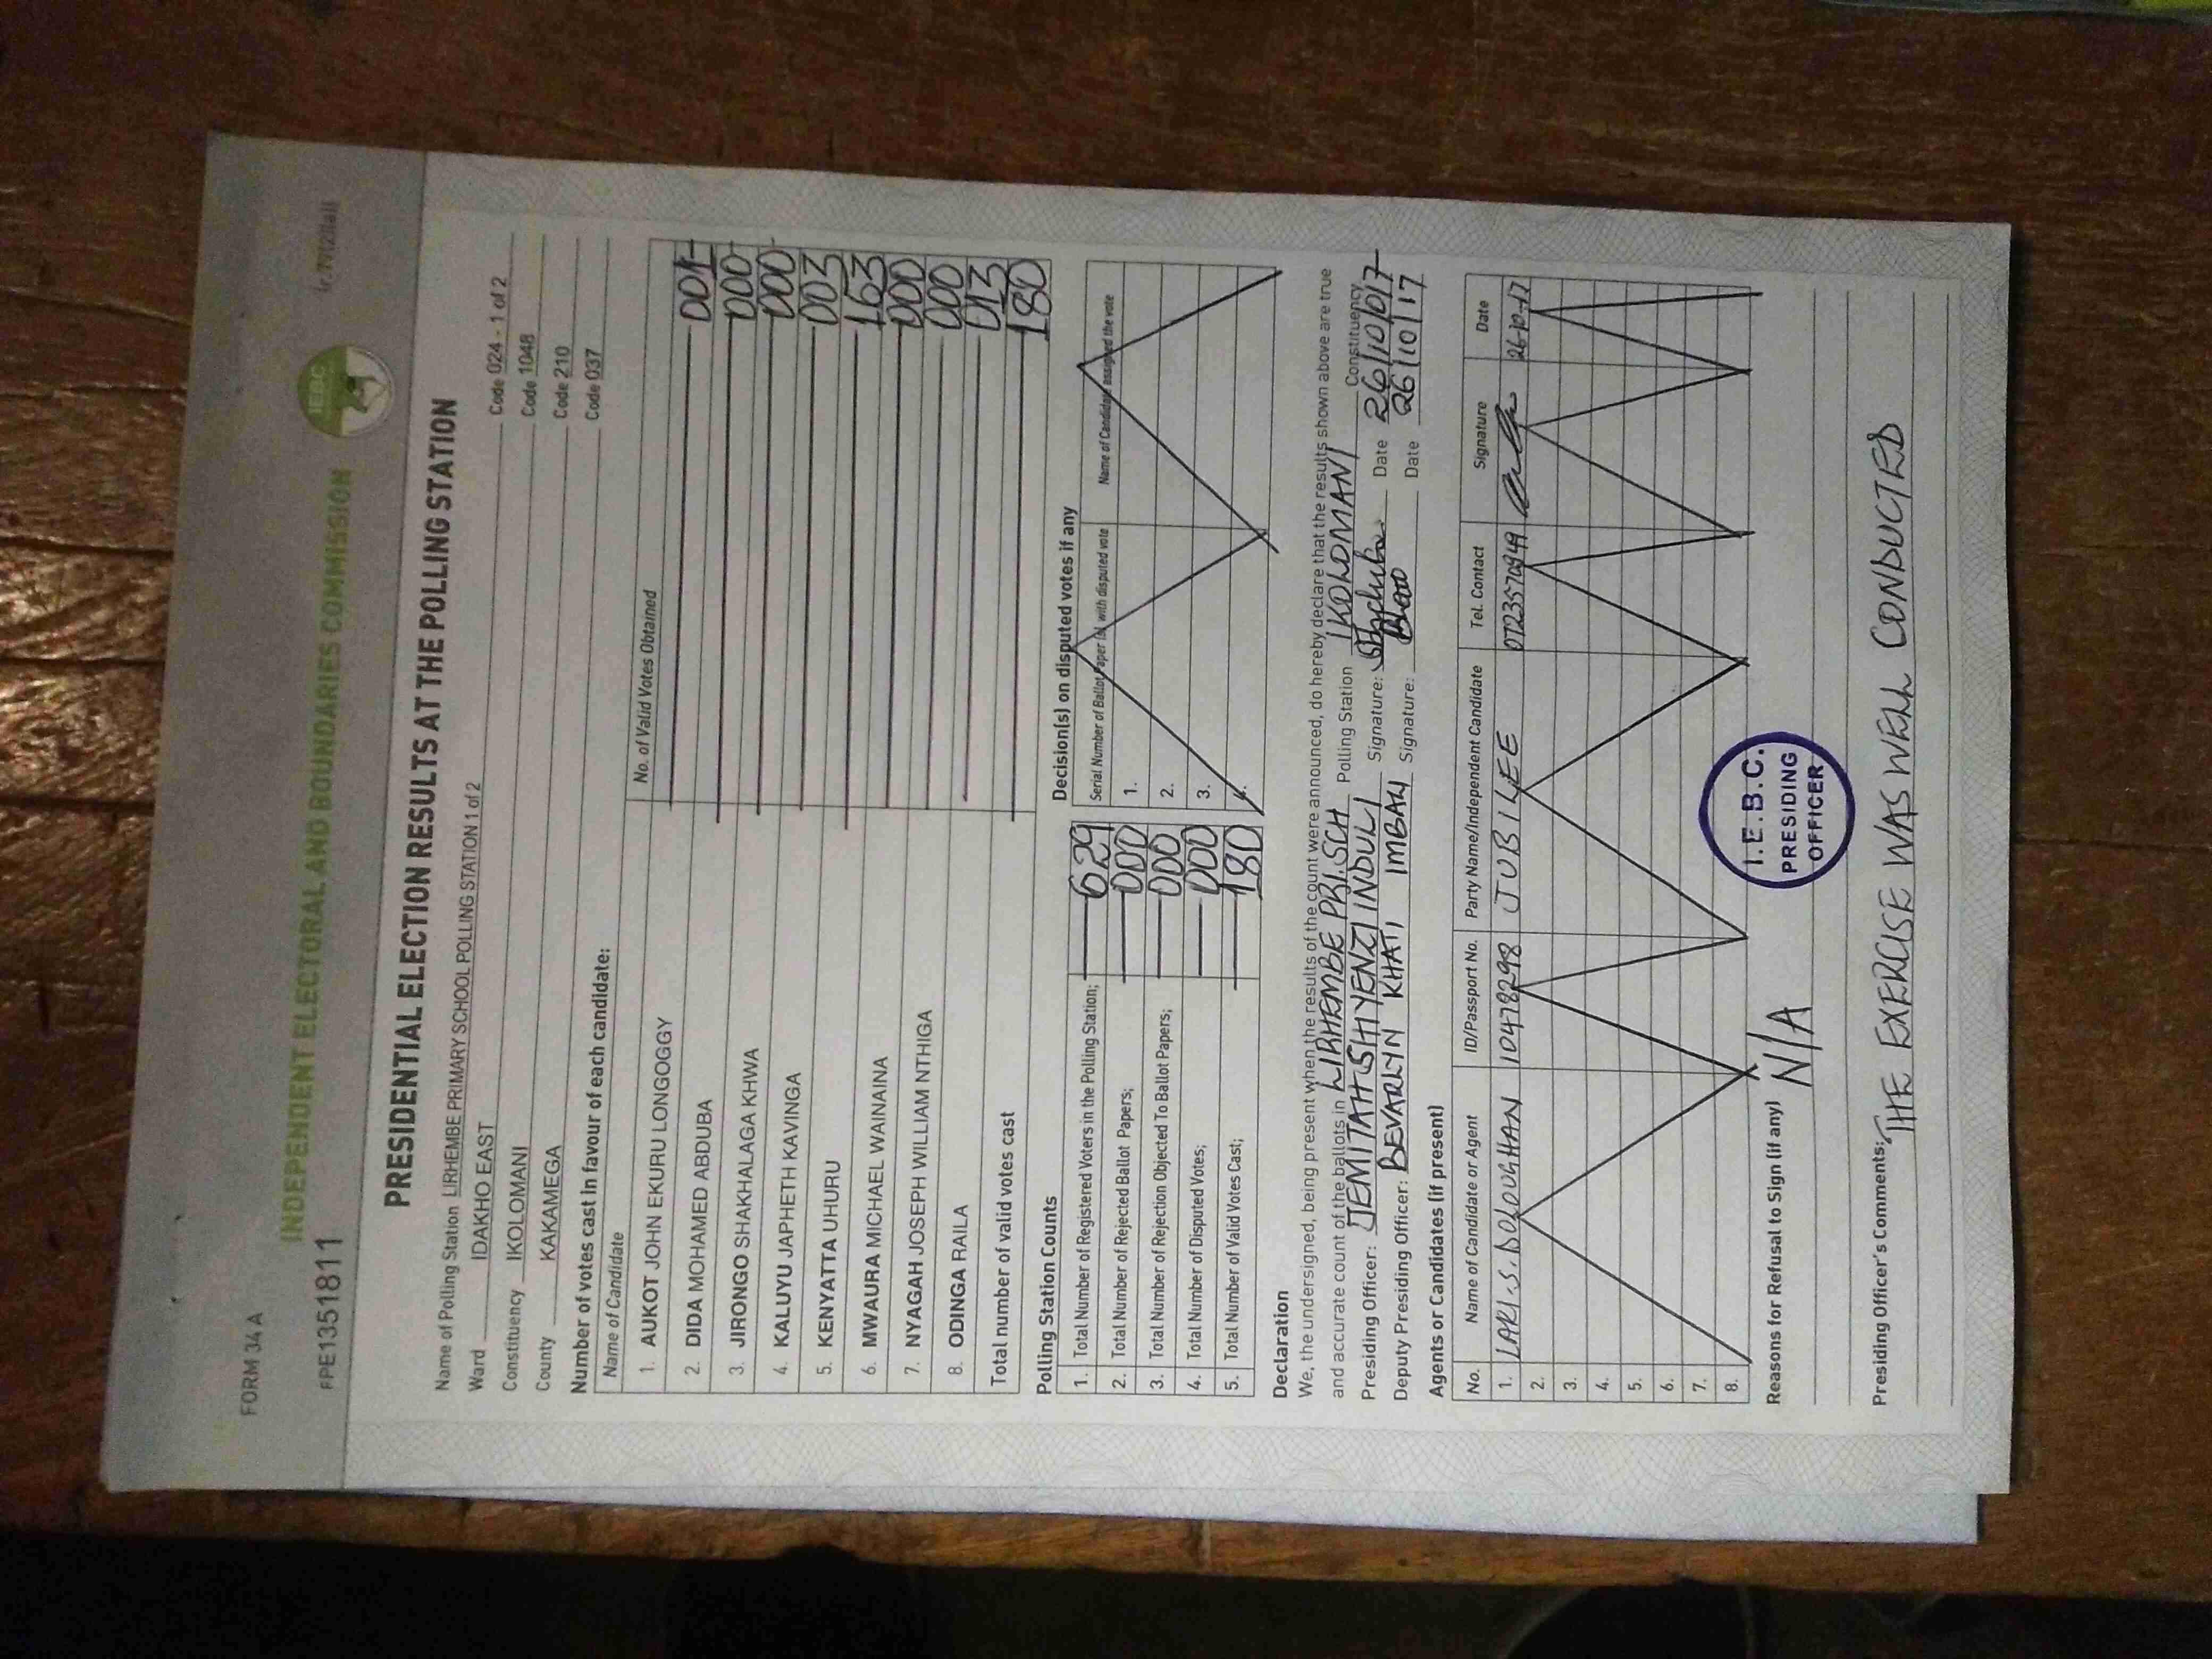 FORM 34 A
INDEPENDENT ELECTORAL AND BOUNDARIES COMMISSION
IEBC
FPE1351811
PRESIDENTIAL ELECTION RESULTS AT THE POLLING STATION
Name of Polling Station LIRHEMBE PRIMARY SCHOOL POLLING STATION 1 of 2 Code 024 - 1 of 2
Ward IDAKHO EAST Code 1048
Constituency IKOLOMANI Code 210
County KAKAMEGA Code 037
Number of votes cast in favour of each candidate:
Name of Candidate No. of Valid Votes Obtained
1. AUKOT JOHN EKURU LONGOGGY 001
2. DIDA MOHAMED ABDUBA 000
3. JIRONGO SHAKHALAGA KHWA 000
4. KALUYU JAPHETH KAVINGA 003
5. KENYATTA UHURU 163
6. MWAURA MICHAEL WAINAINA 000
7. NYAGAH JOSEPH WILLIAM NTHIGA 000
8. ODINGA RAILA 013
Total number of valid votes cast 180
Polling Station Counts
1. Total Number of Registered Voters in the Polling Station; 629
2. Total Number of Rejected Ballot Papers; 000
3. Total Number of Rejection Objected To Ballot Papers; 000
4. Total Number of Disputed Votes; 000
5. Total Number of Valid Votes Cast; 180
Decision(s) on disputed votes if any
Serial Number of Ballot Paper (s) with disputed vote Name of Candidate assigned the vote
1.
2.
3.
4.
Declaration
We, the undersigned, being present when the results of the count were announced, do hereby declare that the results shown above are true
and accurate count of the ballots in LIRHEMBE PRI.SCH Polling Station IKOLOMANI Constituency
Presiding Officer: JEMITAH SHIYENZI INDULI Signature: Date 26/10/017
Deputy Presiding Officer: BEVARLYN KHATI IMBALI Signature: Date 26/10/17
Agents or Candidates (if present)
No. Name of Candidate or Agent ID/Passport No. Party Name/Independent Candidate Tel. Contact Signature Date
1. LARI.S. DOLOUGHAN 10478298 JUBILEE 0723570949 26-10-17
2.
3.
4.
5.
6.
7.
8.
Reasons for Refusal to Sign (if any) N/A
I.E.B.C.
PRESIDING
OFFICER
Presiding Officer's Comments: THE EXERCISE WAS WELL CONDUCTED